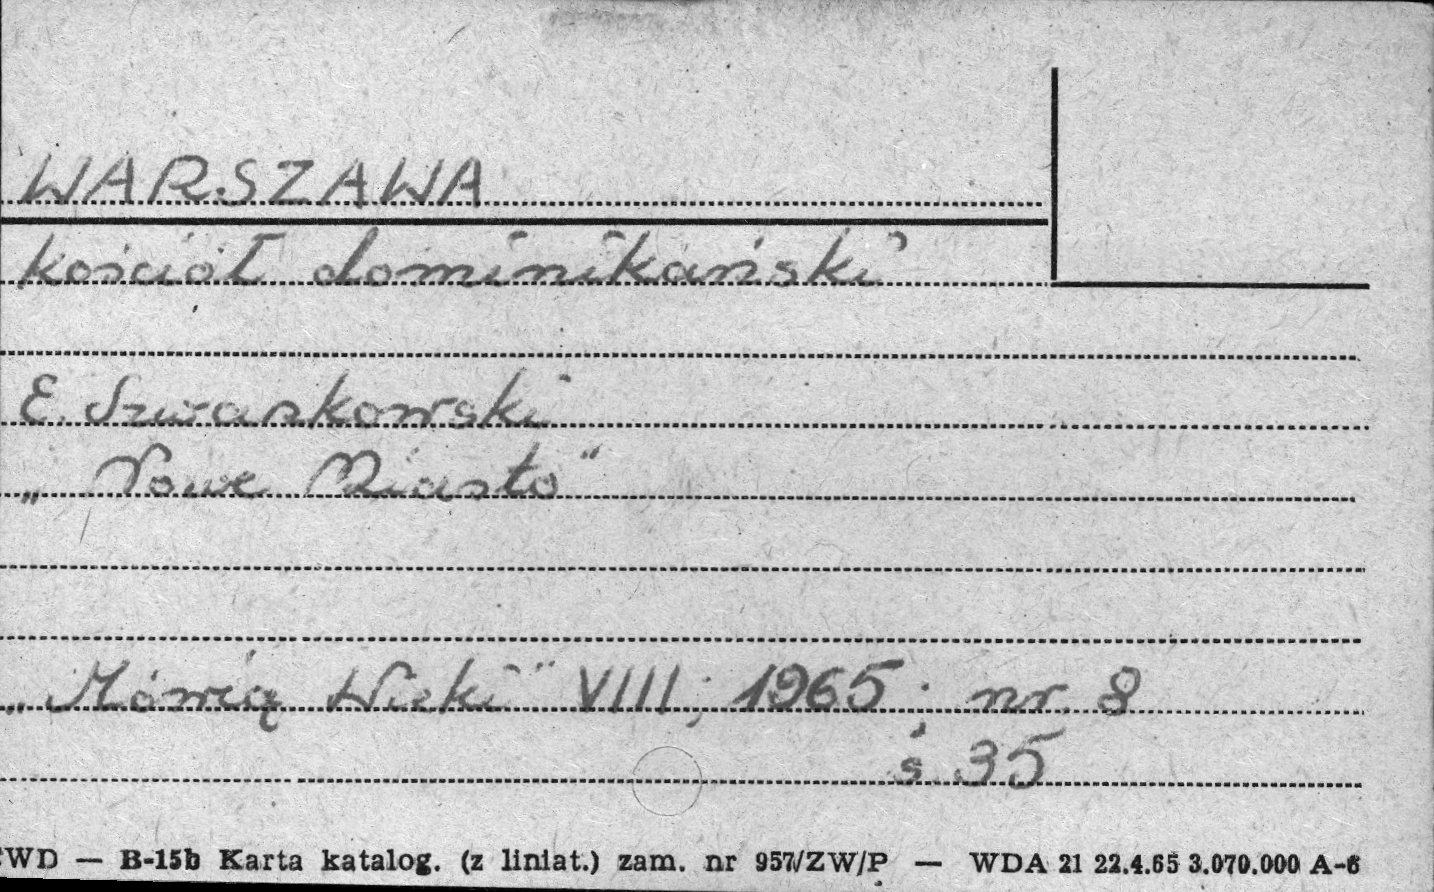 WARSZAWA
kościół dominikański
E. Szwankowski
„Nowe Miasto"
„Mówią Wieki" VIII; 1965; nr. 8
s. 35
CWD — B-15b Karta katalog. (z liniat.) zam. nr 957/ZW/P — WDA 21 22.4.65 3.070.000 A-6